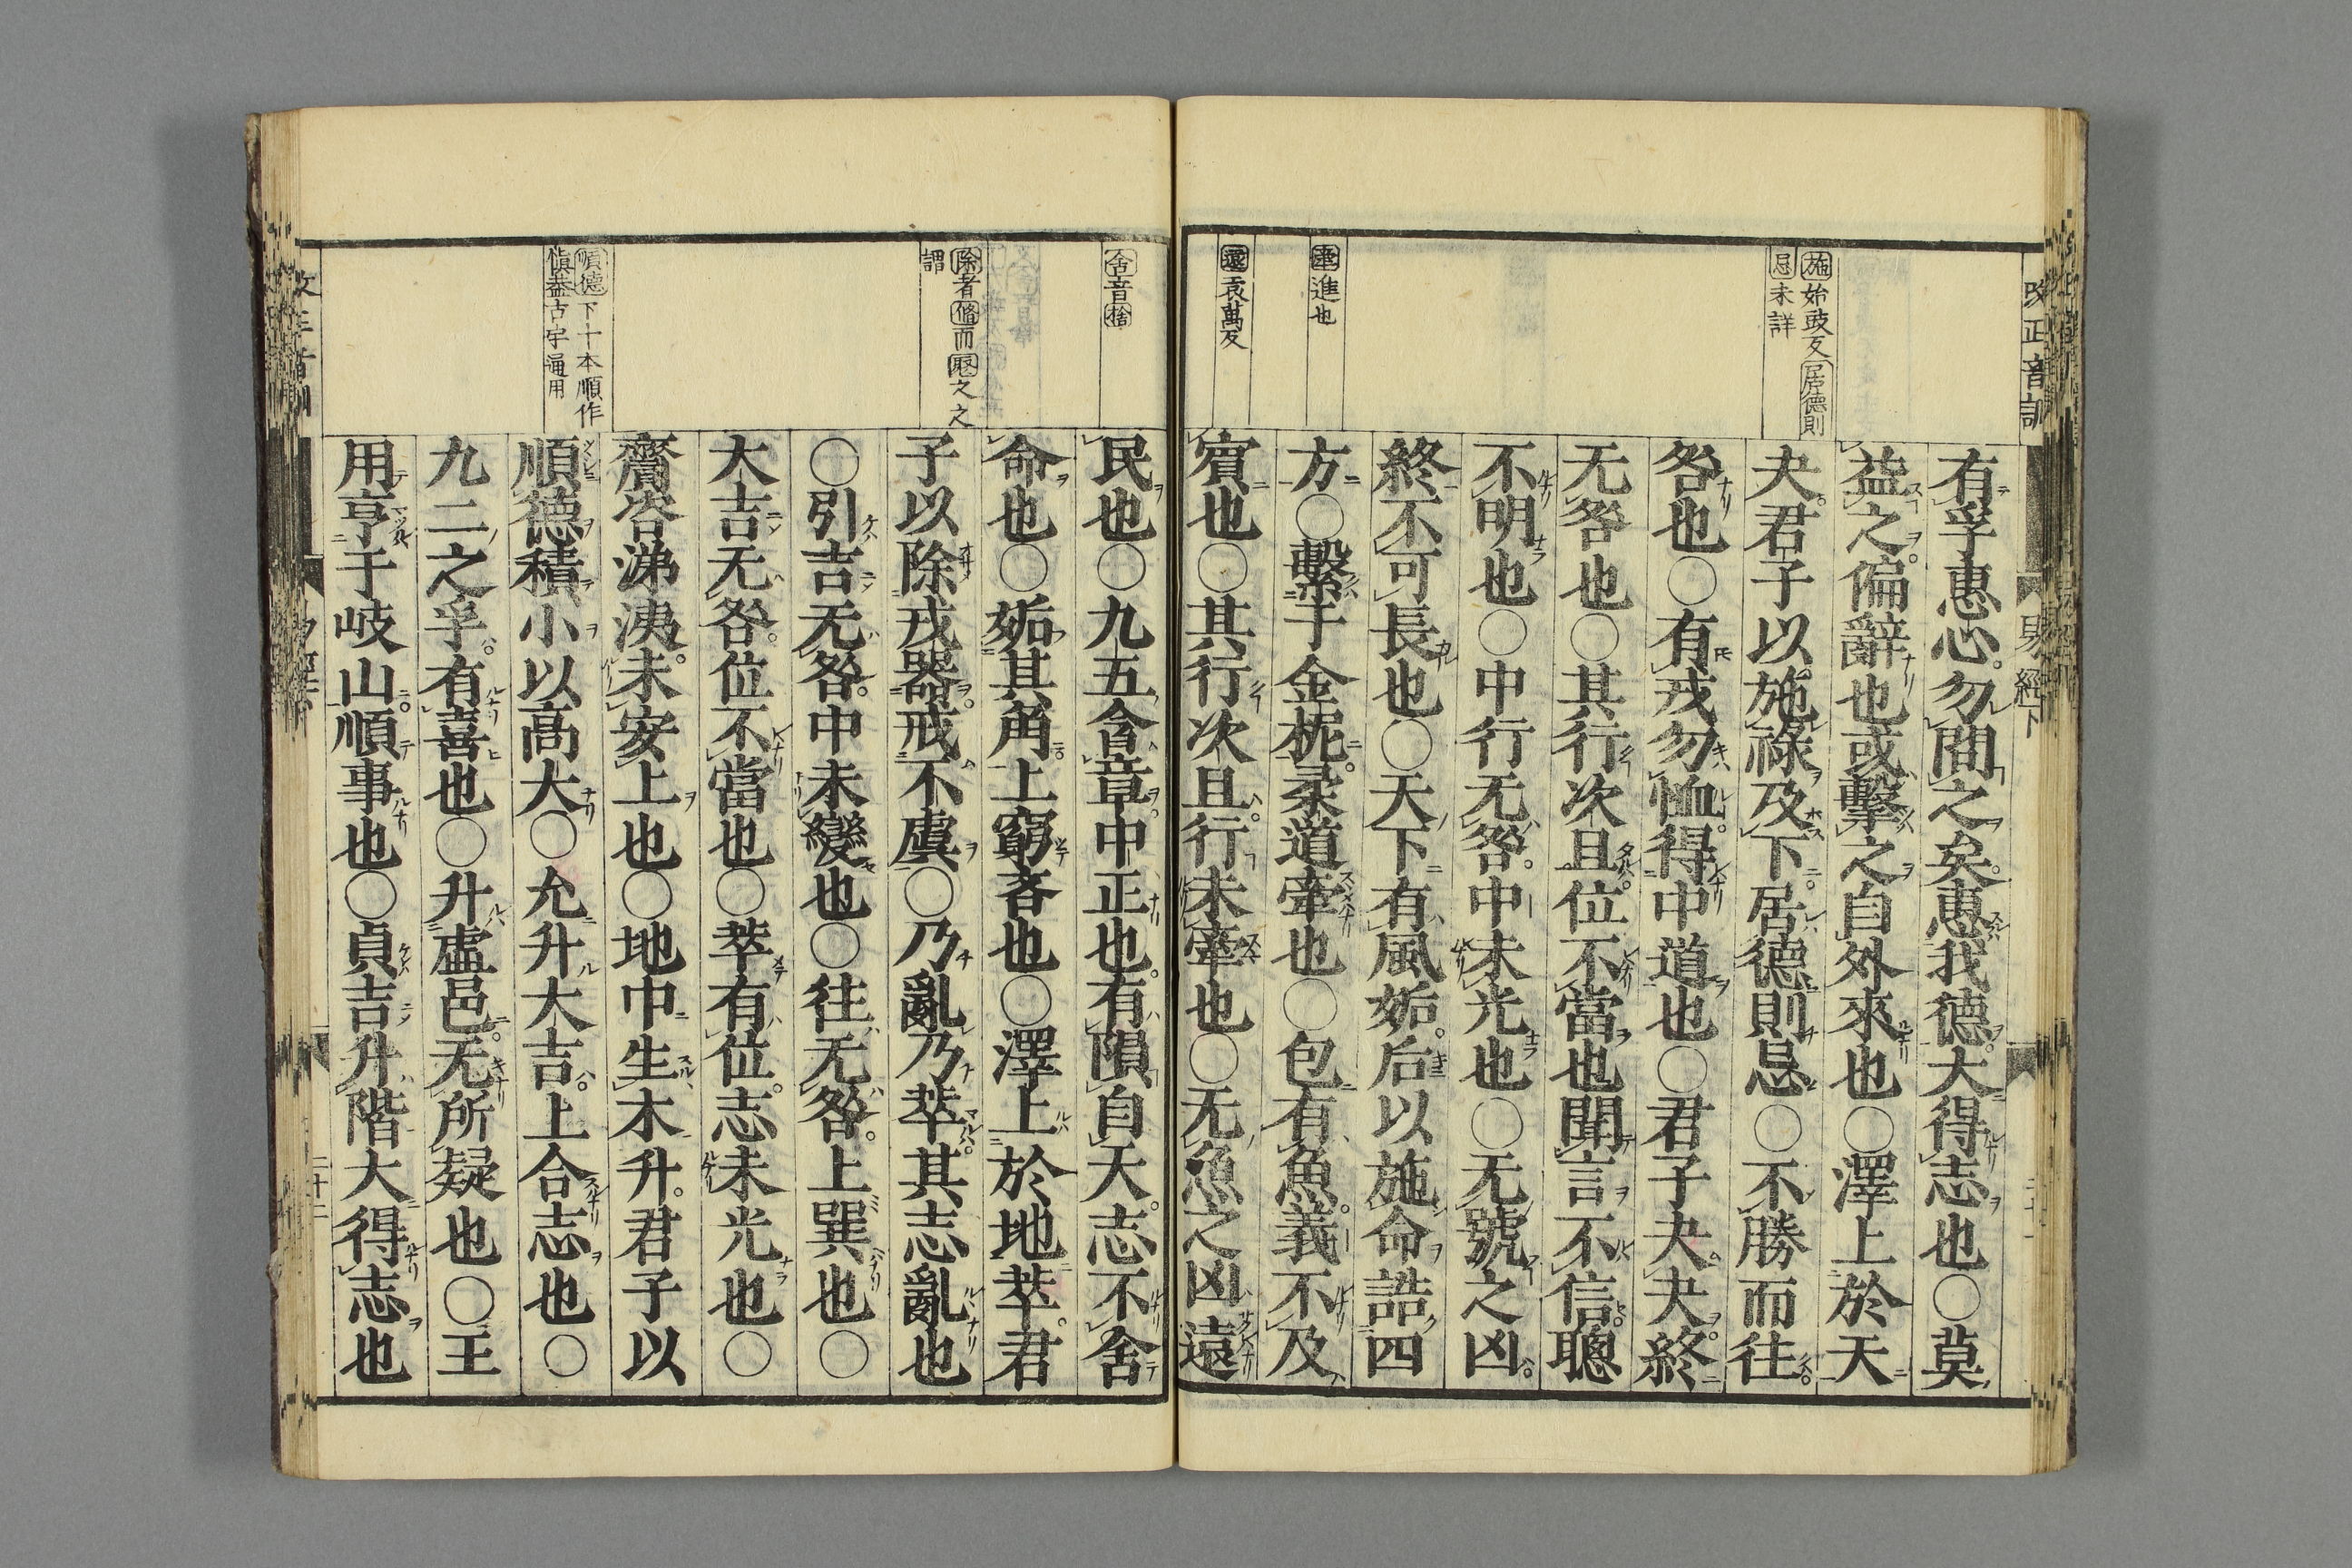 改正音訓
易經下
施始豉反居德則
忌未詳
牽進也
遠袁萬反
有孚惠心勿問之矣惠我德大得志也○莫
益之偏辭也或擊之自外來也○澤上於天
夬君子以施祿及下居德則忌○不勝而往
咎也○有戎勿恤得中道也○君子夬夬終
无咎也○其行次且位不當也聞言不信聰
不明也○中行无咎中未光也○无號之凶
終不可長也○天下有風姤后以施命誥四
方○繫于金柅柔道牽也○包有魚義不及
賓也○其行次且行未牽也○无魚之凶遠
舍音捨
除者脩而
謂
順德下十本順作
愼蓋古字通用
民也○九五含章中正也有隕自天志不舍
命也○姤其角上窮吝也○澤上於地萃君
子以除戎器戒不虞○乃亂乃萃其志亂也
○引吉无咎中未變也○往无咎上巽也○
大吉无咎位不當也○萃有位志未光也○
齎咨涕洟未安上也○地中生木升君子以
順德積小以高大○允升大吉上合志也○
九二之孚有喜也○升虛邑无所疑也○王
用亨于岐山順事也○貞吉升階大得志也
二十二